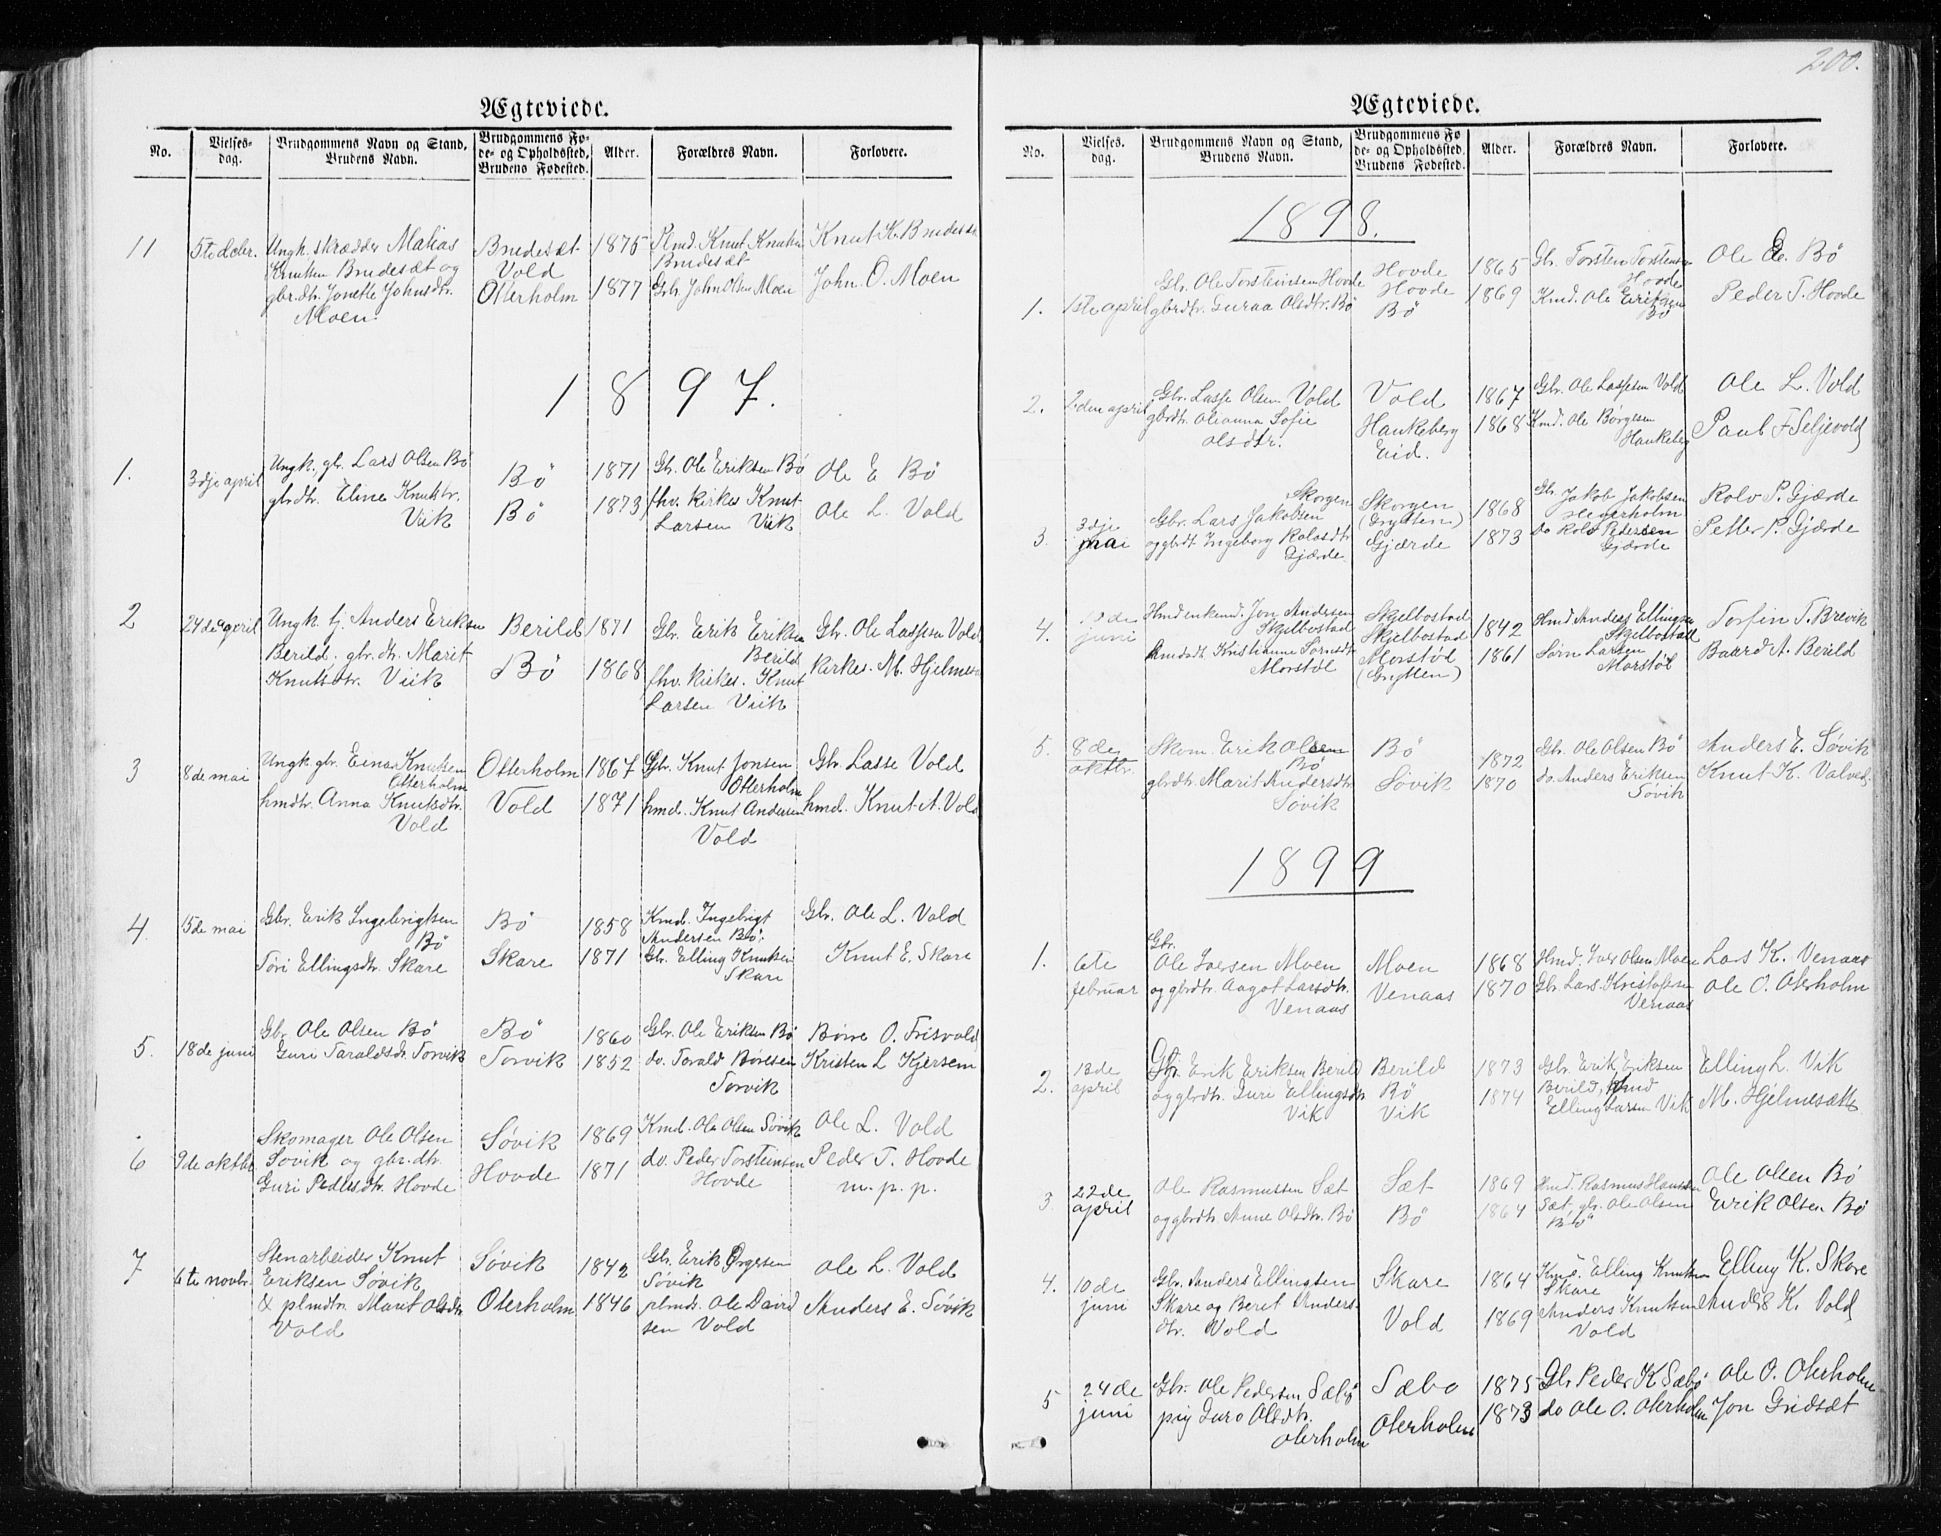 200.
Ægteviede.
No.
Vielses-
dag.
Brudgommens Navn og Stand,
Brudens Navn.
Brudgommens Fø-
de- og Opholdssted,
Brudens Fødested.
Alder.
Forældres Navn.
Forlovere.
11
5te decbr.
Ungk. skrædder Matias
Knutsen Brudesæt og
gbr.dtr. Jonette Johnsdtr.
Moen.
Brudesæt
Vold
Oterholm
1875
1877
Plmd. Knut Knutsen
Brudesæt
Gbr. John Olsen Moen
Knut K. Brudesæt
John O. Moen
1897.
1.
3dje april
Ungk. gbr. Lars Olsen Bø
gbrdtr. Eline Knutsdtr.
Viik
Bø
Bø
1871
1873
Gbr. Ole Eriksen Bø
fhv. kirkes. Knut
Larsen Viik
Ole E Bø
Ole L. Vold
2
24de april
Ungk. tj. Anders Eriksen
Berild. gbr.dtr. Marit
Knutsdtr. Viik
Berild
Bø
1871
1868
Gbr. Erik Eriksen
Berild
fhv. kirkes. Knut
Larsen Viik
Gbr. Ole Lassesen Vold
Kirkes. M. Hjelmesæt
3
8de mai
Ungk. gbr. Einar Knutsen
Otterholm
hmdtr. Anna Knutsdtr.
Vold
Otterholm
Vold
1867
1871
Gbr. Knut Jonsen
Otterholm
hmd. Knut Andersen
Vold
Gbr. Lasse Vold
hmd. Knut A. Vold
4.
15de mai
Gbr. Erik Ingebrigtsen
Bø
Søri Ellingsdtr. Skare
Bø
Skare
1858
1871
Kmd. Ingebrigt
Andersen Bø.
Gbr. Elling Knutsen
Skare
Gbr. Ole L. Vold
Knut E. Skare
5.
18de juni
Gbr. Ole Olsen Bø
Guri Taraldsdr. Torvik
Bø
Torvik
1860
1852
Gbr. Ole Eriksen Bø
do. Tarald Børesen
Torvik
Børre O. Frisvold
Kristen L Kjersem
6
9de oktbr
Skomager Ole Olsen
Søvik og gbr.dtr.
Guri Pedersdtr. Hovde
Søvik
Hovde
1869
1871
Kmd. Ole Olsen Søvik
do. Peder Torsteinsen
Hovde
Ole L. Vold
Peder T. Hovde
m. p. p.
7
6te novbr.
Stenarbeider Knut
Eriksen Søvik
& plmdtr. Marit Olsdtr
Vold
Søvik
Oterholm
1842
1846
Gbr. Erik Ørgersen
Søvik
plmd. Ole David
sen Vold
Ole L. Vold
Anders E. Søvik
Ægteviede.
No.
Vielses-
dag.
Brudgommens Navn og Stand,
Brudens Navn.
Brudgommens Fø
de- og Opholdssted.
Brudens Fødested.
Alder.
Forældres Navn.
Forlovere.
1898.
1.
1ste april
Gbr. Ole Torsteinsen Hovde
gbrdtr. Guraa Olsdtr. Bø
Hovde
Hovde
Bø
1865
1869
Gbr. Torsten Torstensen
Hovde
Kmd. Ole Eriksen
Bø
Ole E. Bø
Peder T. Hovde
2.
2den april
Gbr. Lasse Olsen Vold
gbrdtr. Oleanna Sofie
Olsdtr.
Vold
Haukeberg
Eid.
1867
1868
Gbr. Ole Lassesen Vold
Kmd. Ole Børgesen
Haukeberg
Ole L. Vold
Paul F Seljevold
3.
3dje
mai
Skorgen
Gbr. Lars Jakobsen
og gbrdt. Ingeborg Rolosdtr
Gjærde
Skorgen
(Grytten)
Gjærde
1868
1873
Gbr. Jakob Jakobsen
Hegerholm
Do Rolv Pedersen
Gjærde
Rolv P. Gjærde
Petter P. Gjærde
4.
10de
juni
Hmd enkemd. Jon Andersen
Skjelbostad
Kmdsdt. Kristianne Sørnsdt
Morstøl
Skjelbostad
Skjelbostad
Morstøl
(Grytten)
1842
1861
Hmd Anders Ellingsen
Skjelbostad
Sørn Larsen
Morstøl
Torfin T. Brevik
Baard A. Berild
5.
8de
oktbr.
Skom. Erik Olsen
Bø
gbrdtr Marit Andersdtr
Søvik
Bø
Søvik
1872
1870
Gbr. Ole Olsen Bø
do. Anders Eriksen
Søvik
Anders E. Søvik
Knut K. Valved
1899
1.
6te
februar
Gbr.
Ole Iversen Moen
og gbrdtr. Aagot Larsdtr.
Venaas
Moen
Venaas
1868
1870
Hmd. Iver Olsen Moen
Gbr. Lars Kristofsen
Venaas
Lars K. Venaas
Ole O. Oterholm
2.
13de
april
Gbr. Erik Eriksen Berild
og gbrdtr. Guri Ellingsdtr
Vik
Berild
Bø
Vik
1873
1874
Gbr. Erik Eriksen
Berild, Kmd
Elling Larsen Vik
Elling L. Vik
M. Hjelmesæth
3
22de
april
Ole Rasmussen Sæt
og gbrdtr. Anne Olsdtr. Bø
Sæt
Bø
1869
1864
Hmd. Rasmus Hanssen
Sæt, gbr. Ole Olsen
Bø
Ole Olsen Bø
Erik Olsen Bø
4.
10de
juni
Gbr. Anders Ellingsen
Skare og Beret Anders-
dtr. Vold
Skare
Vold
1864
1869
Elling Knutsen
Skare
Anders Knutsen
Vold
Elling K. Skare
Anders K. Vold
5
24de
juni
Gbr. Ole Pedersen Sæbø
pig Guro Olsdtr.
Oterholm
Sæbø
Oterholm
1875
1873
Gbr Peder K Sæbø
do Ole O. Oterholm
Ole O. Oterholm
Jon Gridsæt